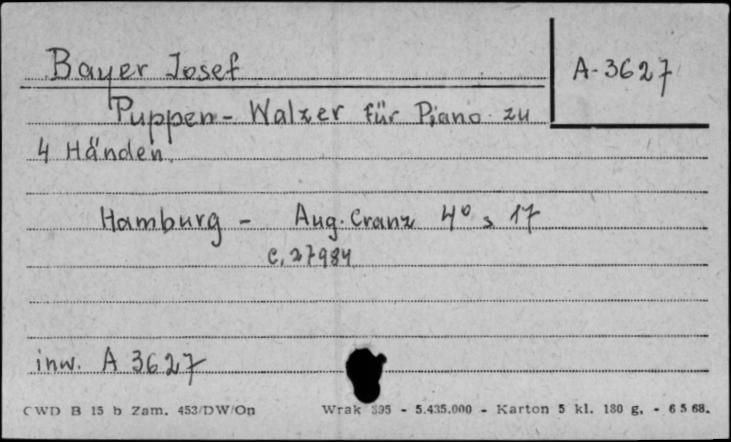 Bayer Josef
A-3627
Puppen- Walzer für Piano zu
4 Händen.
Hamburg - Aug. Cranz 4° s 17
C. 27984
inw. A 3627
CWD B 15 b Zam. 453/DW/On Wrak 395 - 5.435.000 - Karton 5 kl. 180 g. - 6 5 68.